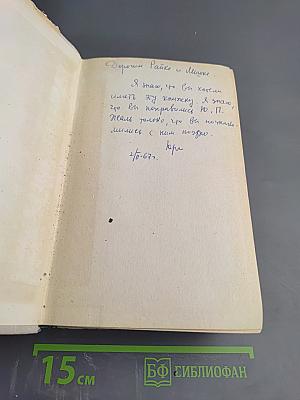 Дорогим Райке и Мишке.
Я знаю, что вы хотели
иметь эту книжку. Я знаю,
что вы понравились Ю. П.
Жаль только, что вы познако-
мились с ним поздно.
67г.
15 см
БФ БИБЛИОФАН